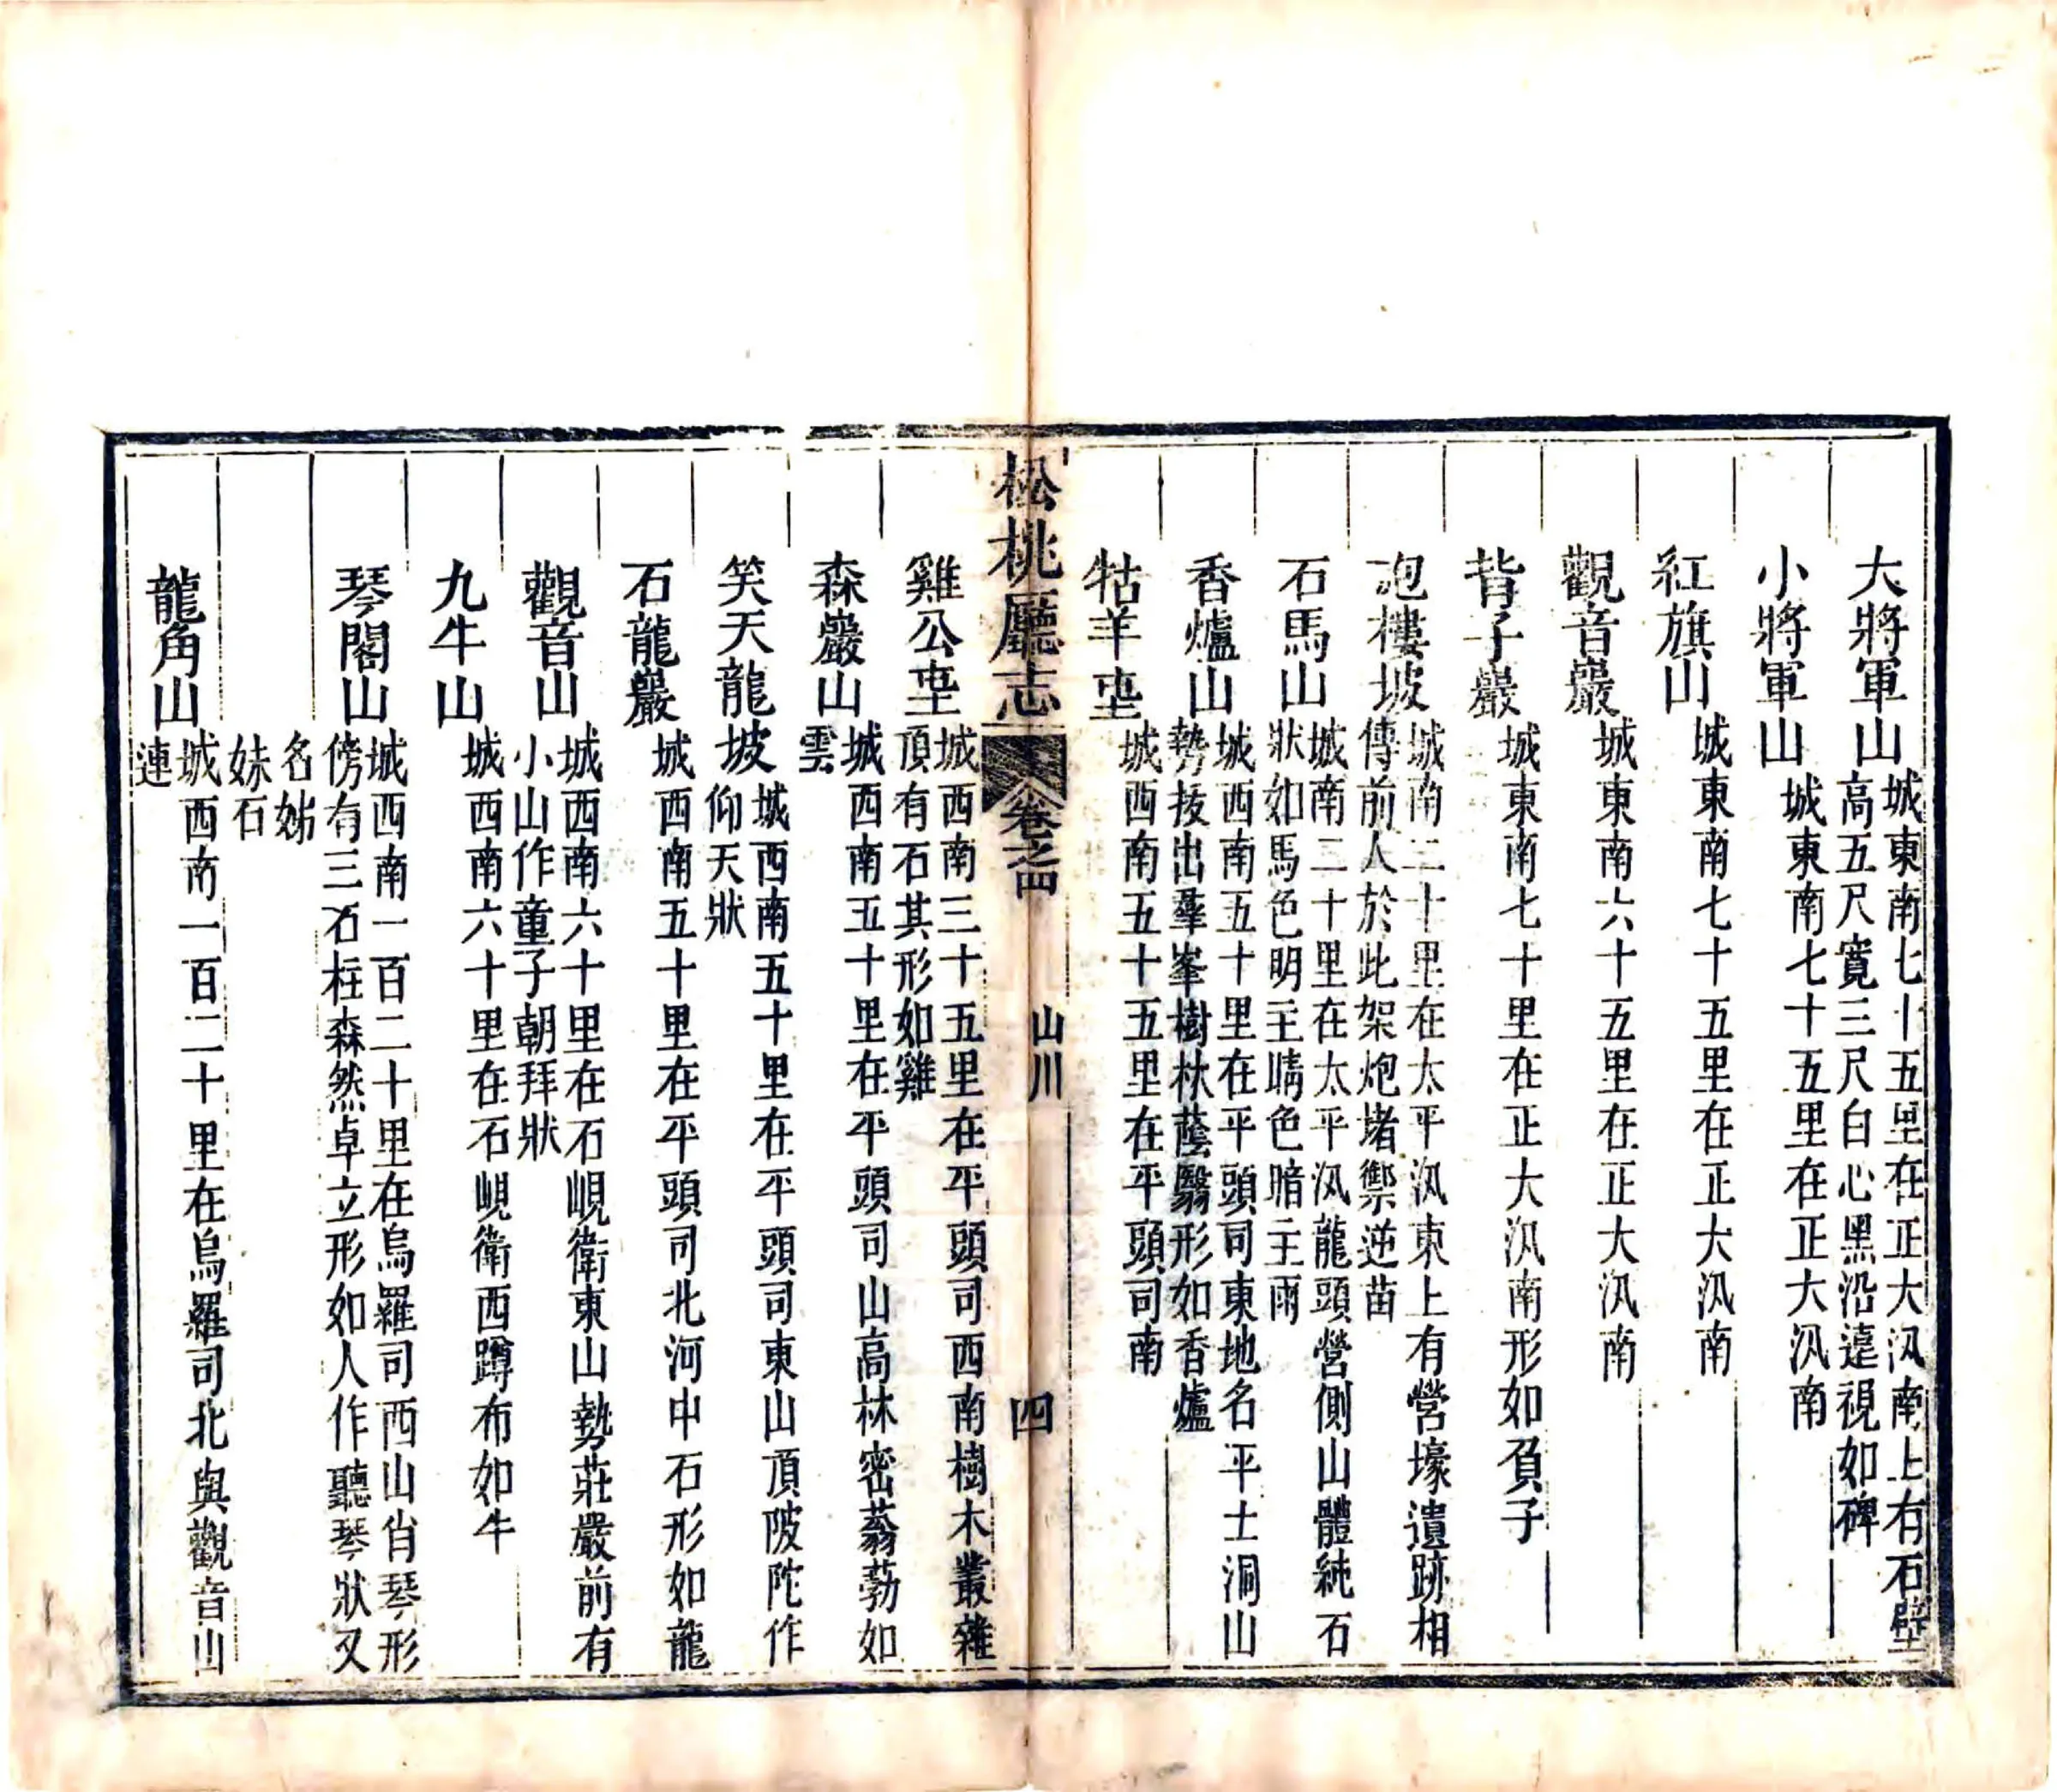 大將軍山
城東南七十五里在正大汛南上有石壁
高五尺寬三尺白心黑沿遠視如碑
小將軍山
城東南七十五里在正大汛南
紅旗山
城東南七十五里在正大汛南
觀音巖
城東南六十五里在正大汛南
背子巖
城東南七十里在正大汛南形如負子
炮樓坡
城南二十里在太平汛東上有營壕遺跡相
傳前人於此架炮堵禦逆苗
石馬山
城南二十里在太平汛龍頭營側山體純石
狀如馬色明主晴色暗主雨
香爐山
城西南五十里在平頭司東地名平士洞山
勢拔出羣峯樹林蔭翳形如香爐
牯羊坉
城西南五十五里在平頭司南
松桃廳志
卷之四
山川
四
雞公坉
城西南三十五里在平頭司西南樹木叢雜
頂有石其形如雞
森巖山
城西南五十里在平頭司山高林密蓊勃如
雲
笑天龍坡
城西南五十里在平頭司東山頂陂陀作
仰天狀
石龍巖
城西南五十里在平頭司北河中石形如龍
觀音山
城西南六十里在石峴衛東山勢莊嚴前有
小山作童子朝拜狀
九牛山
城西南六十里在石峴衛西蹲布如牛
琴閣山
城西南一百二十里在烏羅司西山肖琴形
傍有三石柱森然卓立形如人作聽琴狀又
名姊
妹石
龍角山
城西南一百二十里在烏羅司北與觀音山
連